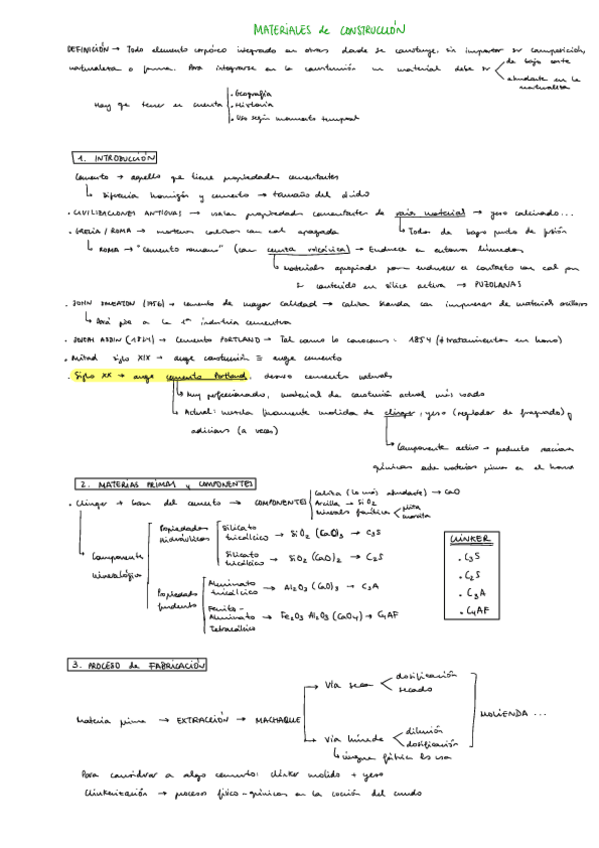 MATERIALES de CONSTRUCCIÓN
DEFINICIÓN → Todo elemento corpóreo integrado en obras donde se construye, sin importar su composición,
naturaleza o forma. Para integrarse en la construcción un material debe ser de bajo coste
abundante en la naturaleza
Hay que tener en cuenta
• Geografía
• Historia
• Uso según momento temporal
1. INTRODUCCIÓN
Cemento → aquello que tiene propiedades cementantes
↳ Diferencia hormigón y cemento → tamaño del árido
• CIVILIZACIONES ANTIGUAS → usan propiedades cementantes de material → yeso calcinado...
↳ Todos de bajo punto de fusión
• GRECIA / ROMA → morteros calizos con cal apagada
↳ ROMA → "cemento romano" (con ceniza volcánica) → Endurece en entornos húmedos
↳ Materiales apropiado para endurecer a contacto con cal por
su contenido en sílice activa → PUZOLANAS
• JOHN SMEATON (1756) → cemento de mayor calidad → caliza blanda con impurezas de material arcilloso
↳ Dará pie a la 1ª industria cementera
• ASPDIN (1824) → cemento PORTLAND → Tal como lo conocemos - 1854 (tratamientos en horno)
• Mitad siglo XIX → auge construcción = auge cemento
• Siglo XX → auge cemento Portland, demás cementos naturales
↳ Muy perfeccionado, material de construcción actual más usado
↳ Actual: mezcla finamente molida de clinger, yeso (regulador de fraguado) y
adiciones (a veces)
↳ Componente activo → producto
químicas entre materias primas en el horno
2. MATERIAS PRIMAS y COMPONENTES
• Clinger → base del cemento → COMPONENTES
Caliza (la más abundante) → CaO
Arcilla → SiO2
Minerales
↳ Componente mineralógico
Propiedades hidráulicas
Silicato tricálcico → SiO2 (CaO)3 → C3S
Silicato bicálcico → SiO2 (CaO)2 → C2S
Propiedades fundentes
Aluminato tricálcico → Al2O3 (CaO)3 → C3A
Ferrito-Aluminato Tetracálcico → Fe2O3 Al2O3 (CaO4) → C4AF
CLINKER
• C3S
• C2S
• C3A
• C4AF
3. PROCESO de FABRICACIÓN
Materia prima → EXTRACCIÓN → MACHAQUE
→ Vía seca
dosificación
secado
→ Vía húmeda
dilución
dosificación
↳ ninguna fábrica la usa
MOLIENDA ...
Para considerar a algo cemento: clinker molido + yeso
Clinkerización → procesos físico-químicos en la cocción del crudo